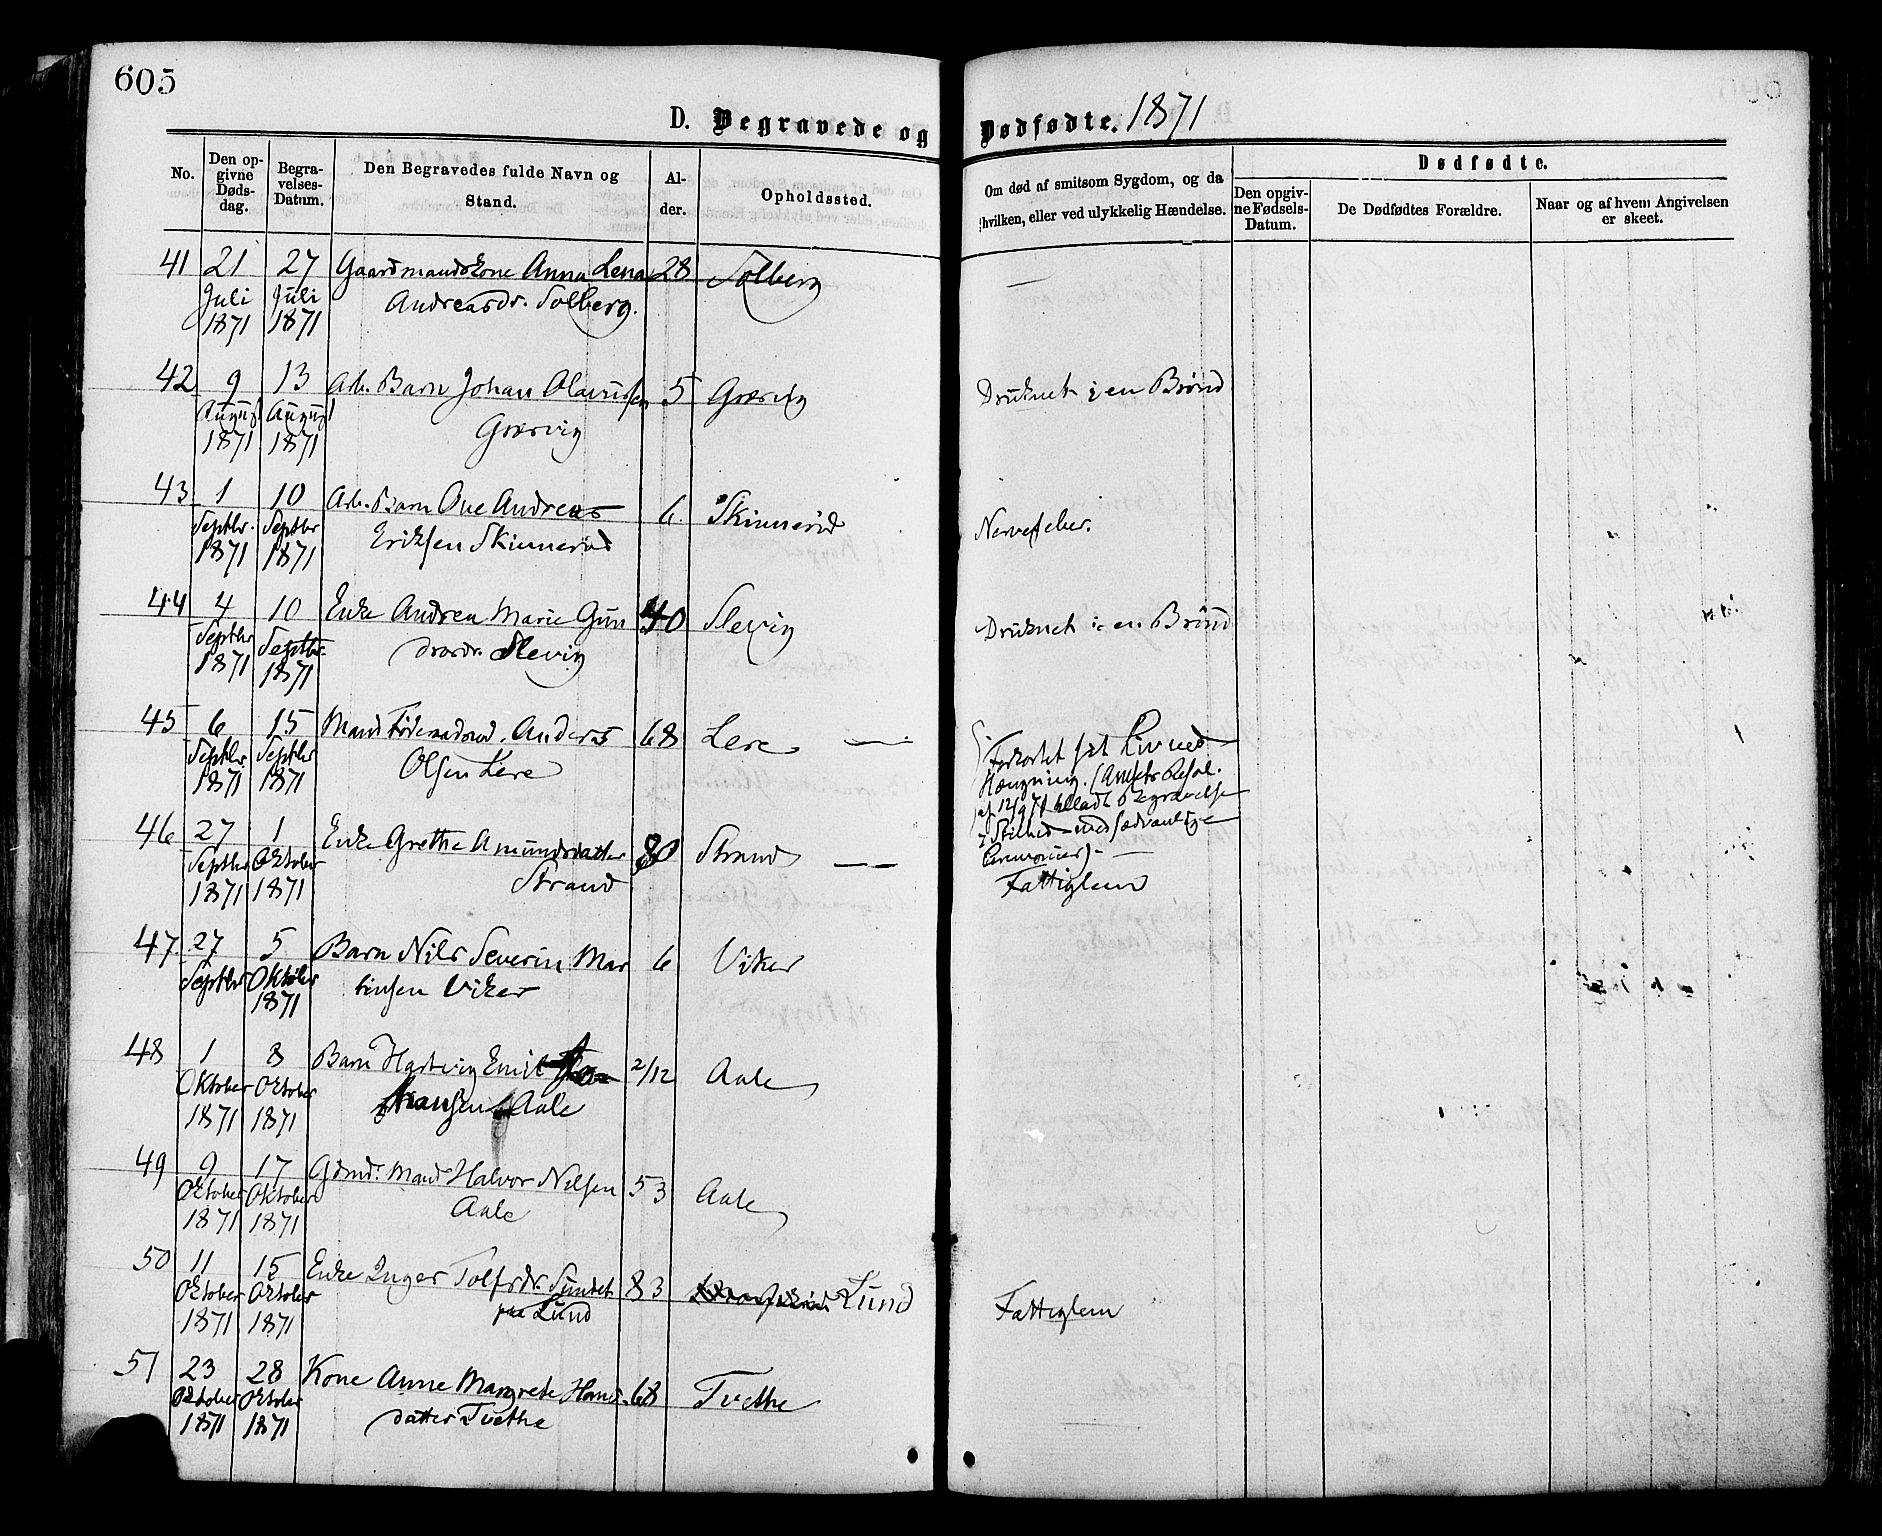 605
D. Begravede og Dødfødte. 1871
No.
Den opgivne Dødsdag.
Begravelses-Datum.
Den Begravedes fulde Navn og Stand.
Alder.
Opholdssted.
Om død af smitsom Sygdom, og da hvilken, eller ved ulykkelig Hændelse.
Dødfødte.
Den opgivne Fødsels-Datum.
De Dødfødtes Forældre.
Naar og af hvem Angivelsen er skeet.
41 21 27 Gaardmandskone Anna Lena 28 Solberg —
Juli Juli Andreasdr. Solberg.
1871 1871
42 9 13 Arb. Barn Johan Olavussen 5 Græsvig Druknet i en Brønd
August August Græsvig
1871 1871
43 1 10 Arb. Barn Ove Andreas 6 Skinnerød Nervefeber.
Septbr. Septbr Eriksen Skinnerød
1871 1871
44 4 10 Enke Andrea Marie Gun 40 Slevig Druknet i en Brønd
Septbr Septbr. drosdr. Slevig
1871 1871
45 6 15 Mand Føderaadsmd. Anders 68 Lere —
Septbr Septbr Olsen Lere
1871 1871
Forkortet sit Liv ved
Hængning. (Amtets Resol.
af 12/9 71 tilladt Begravelse
i Stilhed med sædvanlige
Ceremonier) —
46 27 1 Enke Grethe Amundsdatter 80 Strand — Fattiglem
Septbr Oktober Strand
1871 1871
47. 27 5 Barn Nils Severin Mar 6 Viker
Septbr Oktober tinsen Viker
1871
48 1 8 Barn Hartvig Emil 2/12 Aale
Oktober Oktober Hansen Aale
1871 1871
49 9 17 Gdmd. Mand Halvor Nilsen 53 Aale
Oktober Oktober Aale
1871 1871
50 11 15 Enke Inger Tolfsdr Sundet 83 Lund Fattiglem
Oktober Oktober paa Lund
1871 1871
51 23 28 Kone Anne Margrete Hans 68 Tvethe
Oktober Oktober datter Tvethe
1871 1871